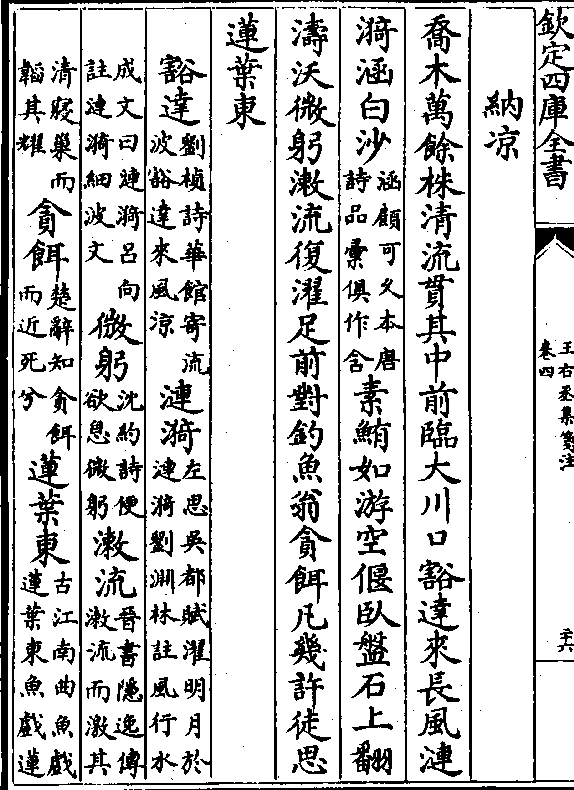 欽定四庫全書
王右丞集箋注
卷四
二十六
納凉
喬木萬餘株清流貫其中前臨大川口豁達來長風漣
漪涵白沙涵顧可久本唐詩品彚俱作含素鮪如游空偃臥盤石上翻
濤沃微躬潄流復濯足前對釣魚翁貪餌凡幾許徒思
蓮葉東
豁達劉楨詩華館寄流波豁達來風凉漣漪左思吳都賦濯明月於漣漪劉淵林註風行水
成文曰漣漪呂向註漣漪細波文微躬沈約詩便欲息微躬潄流晉書隱逸傳潄流而激其
清寢巢而韜其耀貪餌楚辭知貪餌而近死兮蓮葉東古江南曲魚戲蓮葉東魚戲蓮